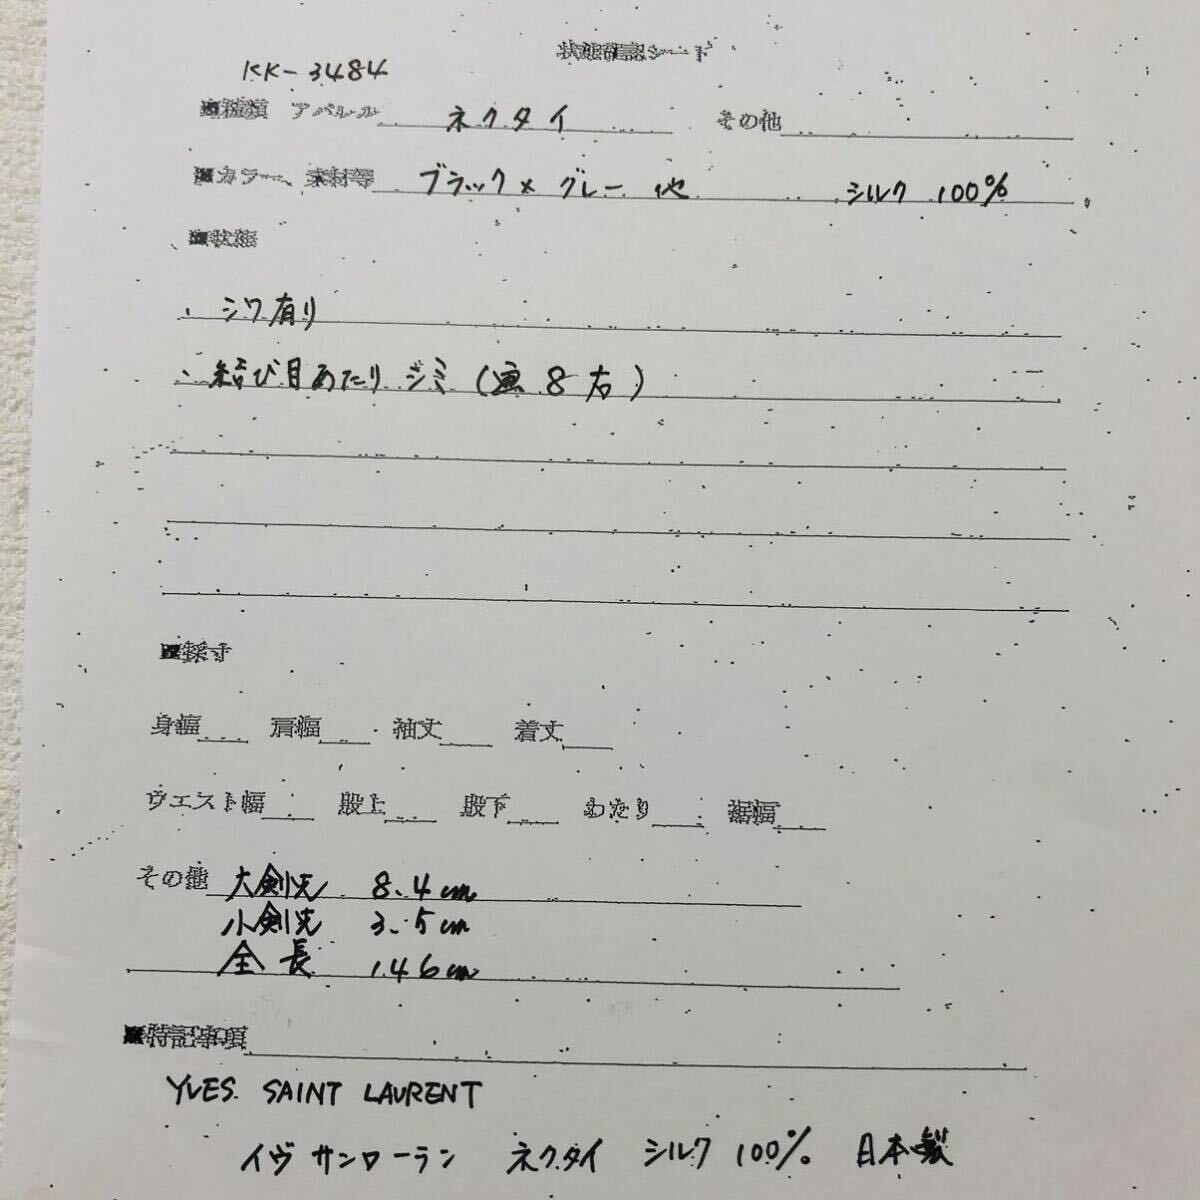 状態確認シート
KK-3484
■種類 アパレル ネクタイ その他
■カラー、素材等 ブラック×グレー 他 シルク 100%
■状態
・シワ有り
・結び目あたり ジミ (画8右)
■採寸
身幅 肩幅 袖丈 着丈
ウエスト幅 股上 股下 わたり 裾幅
その他 大剣先 8.4cm
小剣先 3.5cm
全長 146cm
■特記事項
YVES SAINT LAURENT
イヴサンローラン ネクタイ シルク 100% 日本製